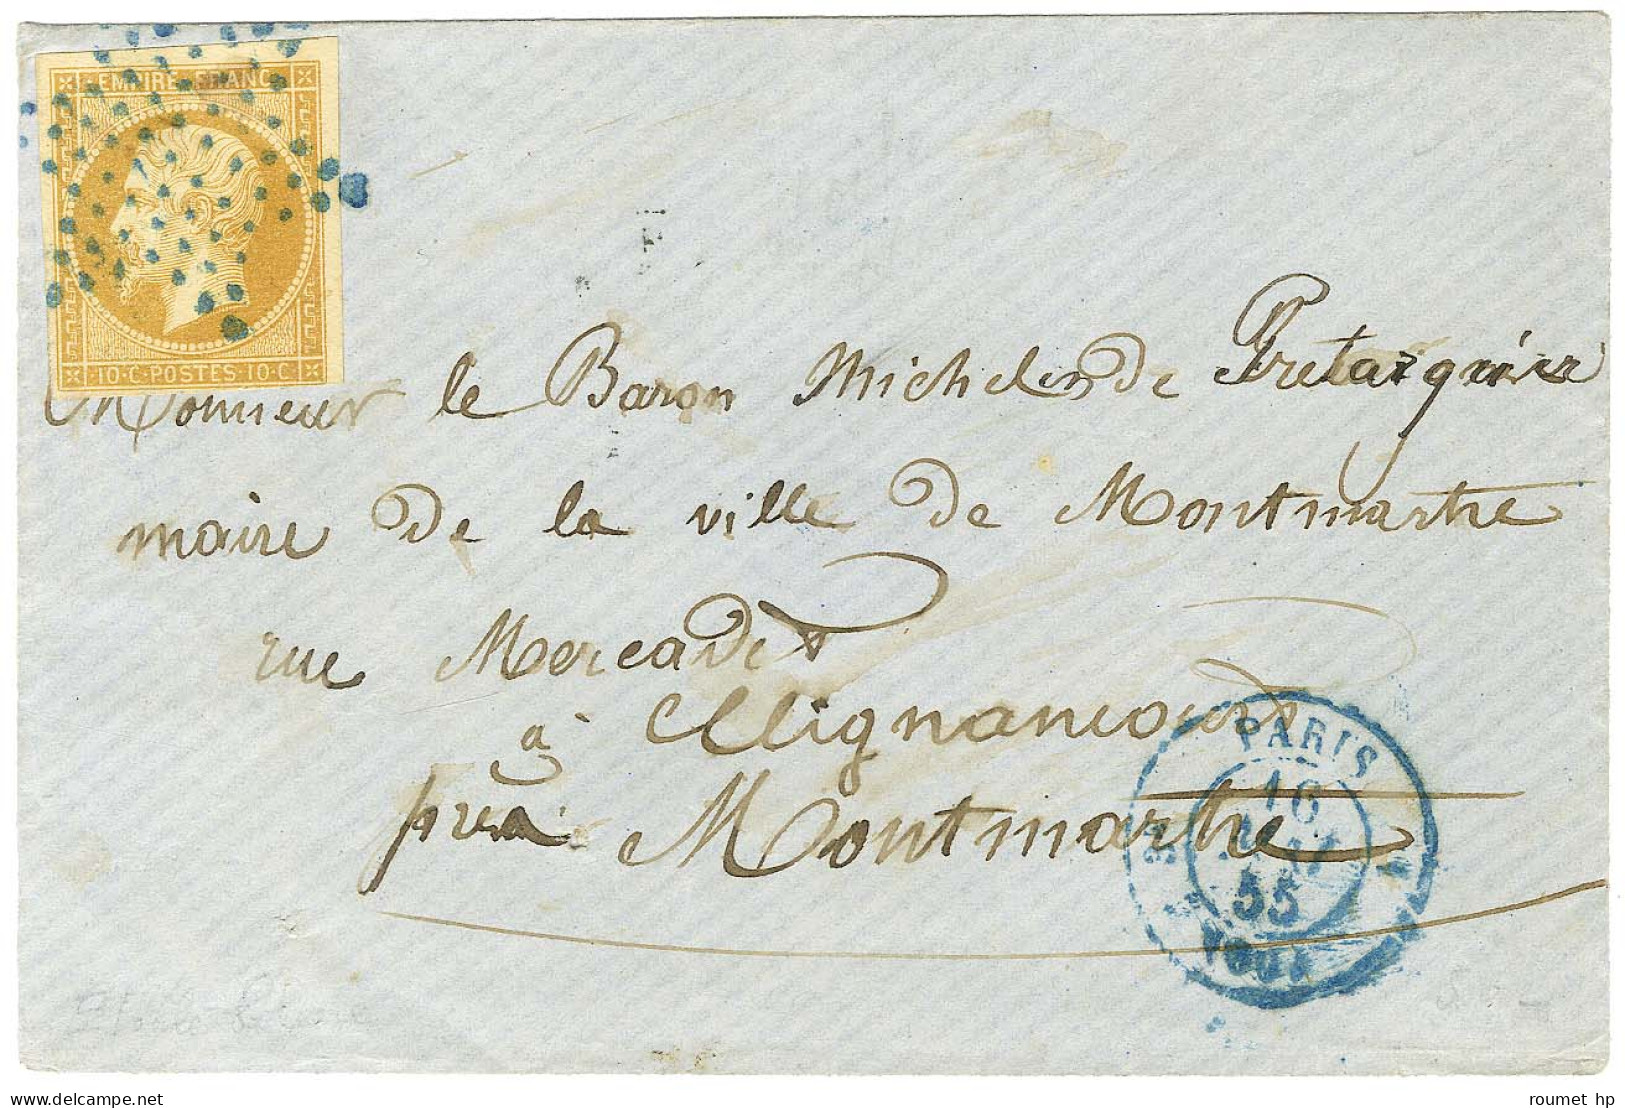 EMPIRE FRANC
10·C·POSTES·10·C
Monsieur le Baron Michel de
maire de la ville de Montmartre
rue Mercadet
à Clignancourt
près Montmartre
PARIS
16
55
roumet hp